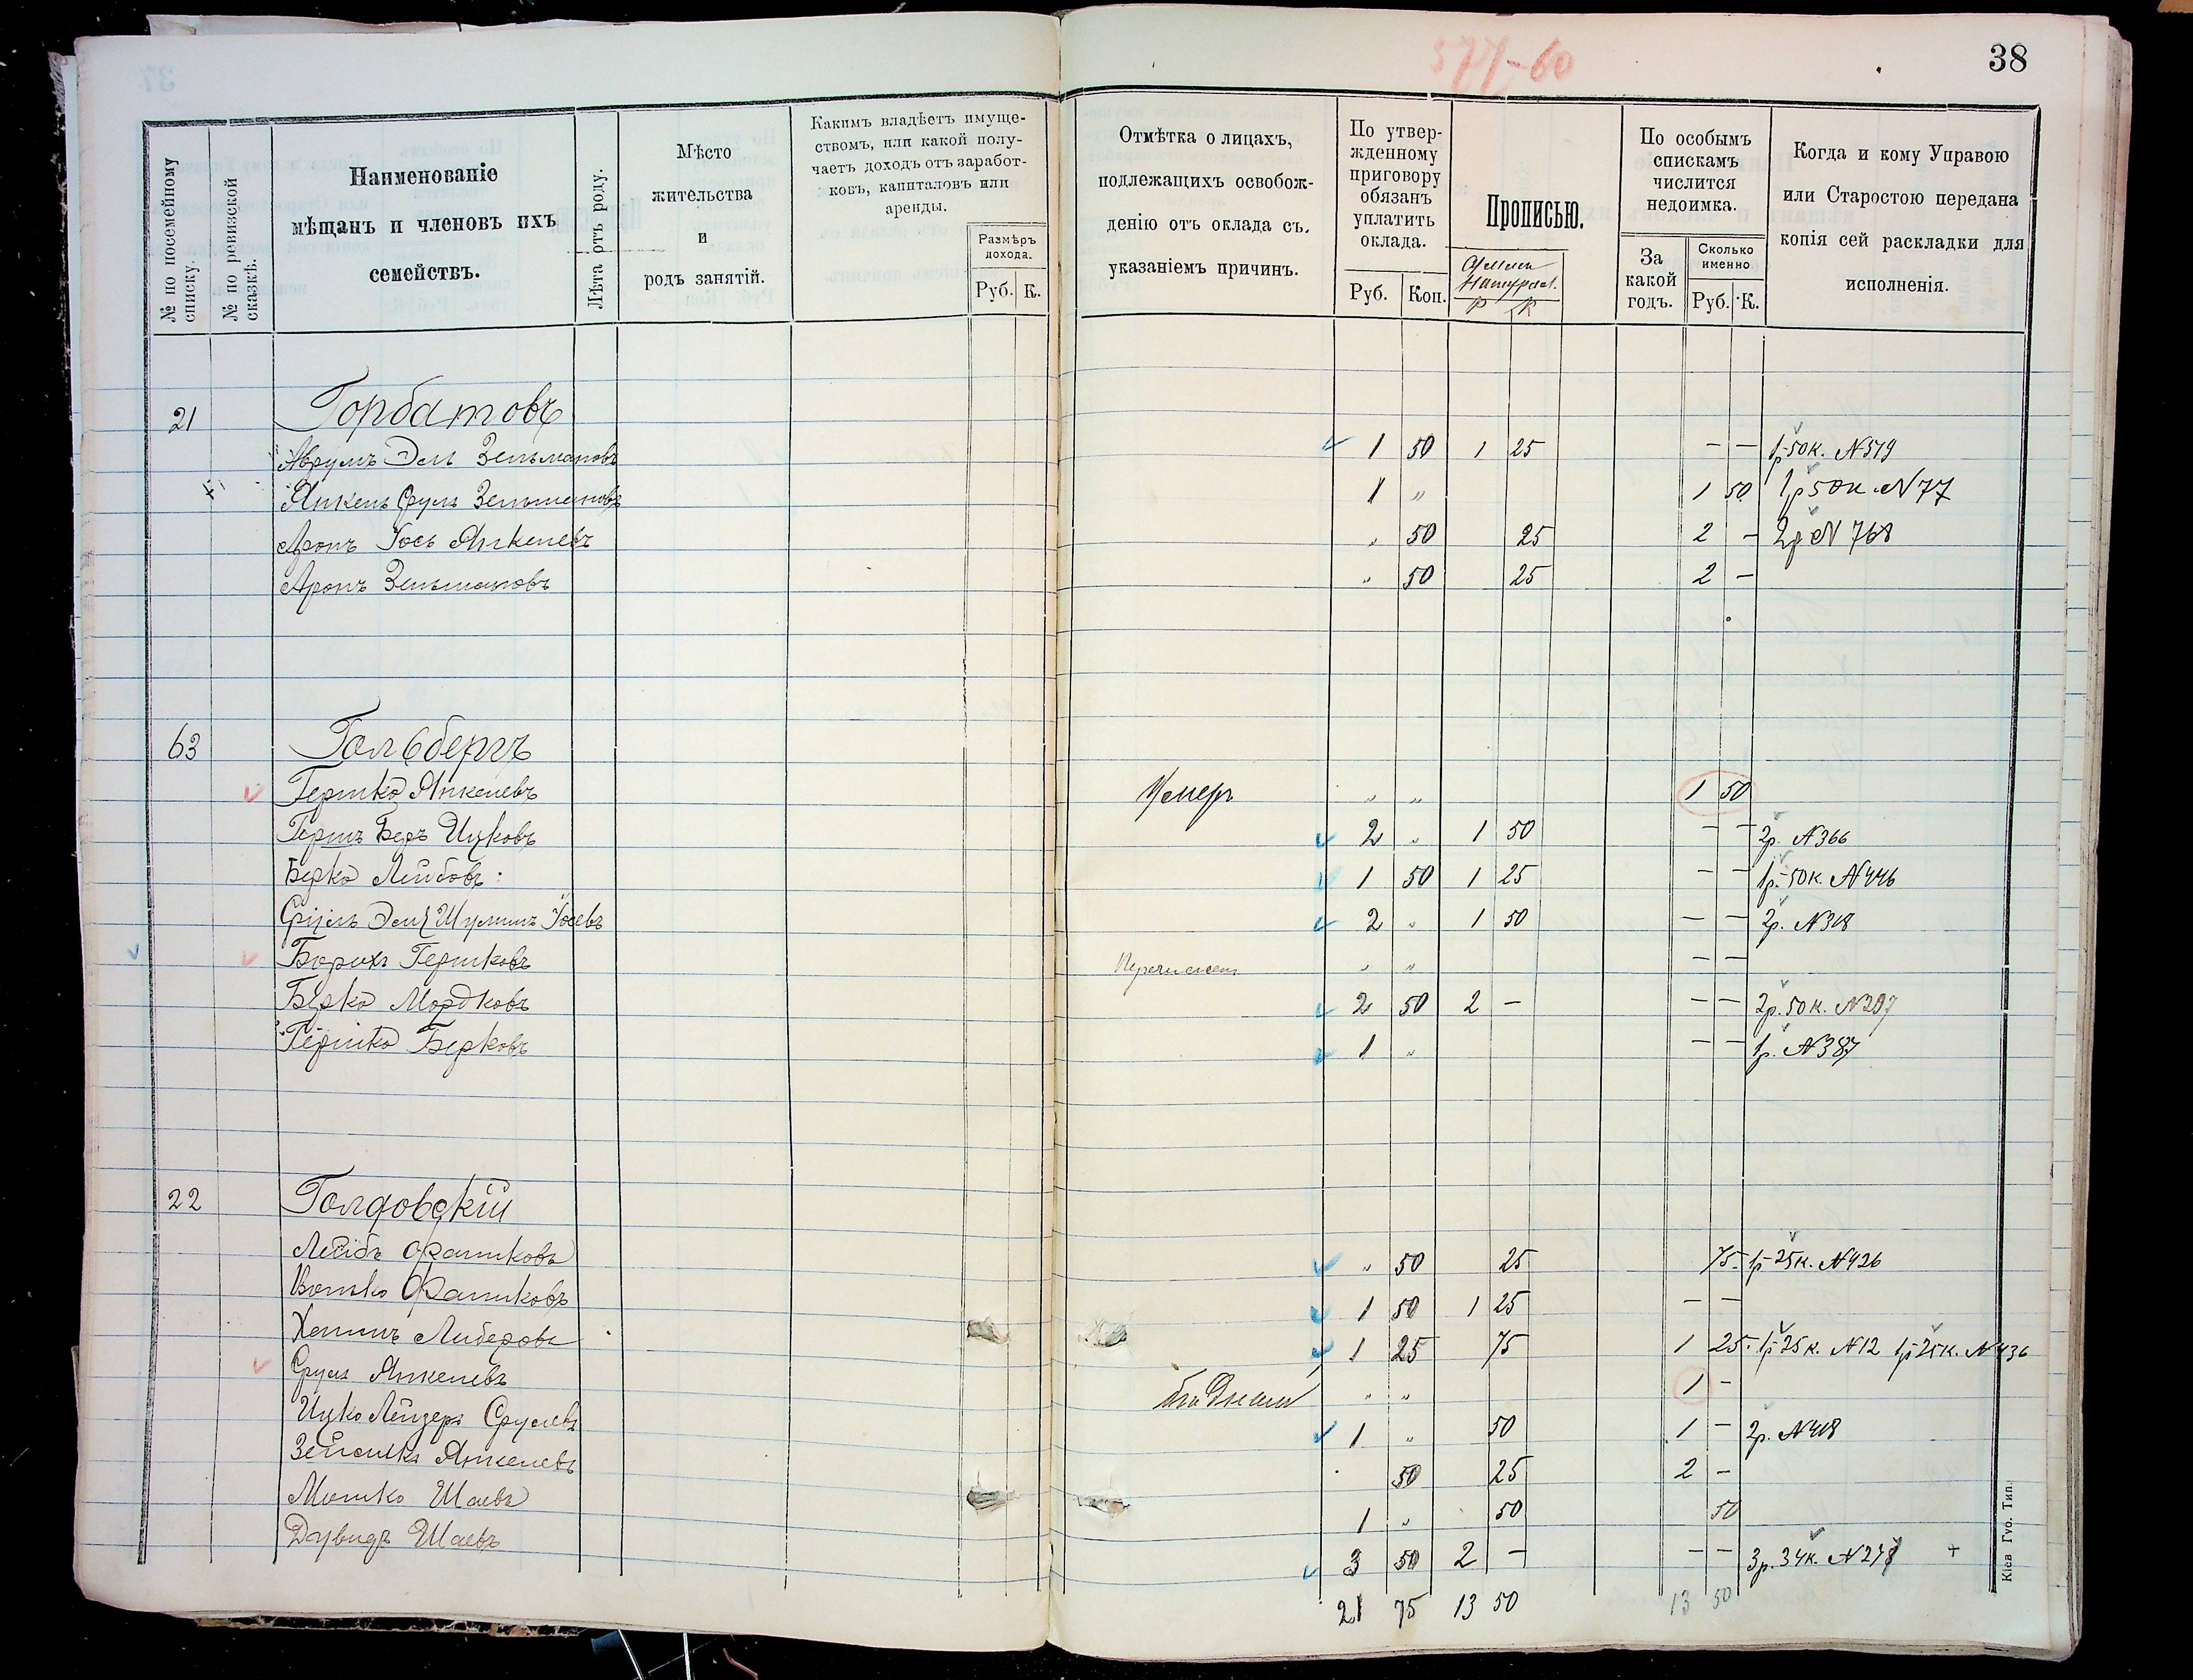 577-60
38
№ по посемейному списку.
№ по ревизской сказкѣ.
Наименованіе
мѣщанъ и членовъ ихъ
семействъ.
Лѣта отъ роду.
Мѣсто
жительства
и
родъ занятій.
Какимъ владѣетъ имуще-
ствомъ, или какой полу-
чаетъ доходъ отъ заработ-
ковъ, капиталовъ или
аренды.
Размѣръ
дохода.
Руб. К.
Отмѣтка о лицахъ,
подлежащихъ освобож-
денію отъ оклада съ
указаніемъ причинъ.
По утвер-
жденному
приговору
обязанъ
уплатить
оклада.
Руб. Коп.
Прописью.
Натурал.
Р К
По особымъ
спискамъ
числится
недоимка.
За
какой
годъ.
Сколько
именно
Руб. К.
Когда и кому Управою
или Старостою передана
копія сей раскладки для
исполненія.
21 Горбатовъ
Аврумъ Эль Зельмановъ 1 50 1 25 — — 1р-50к. N519
Янкель Сруль Зельмановъ 1 „ 1 50 1р50к N77
Аронъ Іось Янкелевъ „ 50 25 2 — 2р N 768
Аронъ Зельмановъ „ 50 25 2 —
63 Гольбергъ
Гершко Янкелевъ Умеръ „ „ 1 50
Гершъ Беръ Ицковъ 2 „ 1 50 — — 2р. N366
Берко Лейбовъ 1 50 1 25 — — 1р.-50к. N446
Сруль Эль Шулимъ Іосевъ 2 „ 1 50 — — 2р. N318
Борухъ Гершковъ Перечисленъ „ „ — —
Берко Мордковъ 2 50 2 — — — 2р.50к. N297
Гершко Берковъ 1 „ — — 1р. N387
22 Голдовскій
Лейбъ Фаликовъ „ 50 25 75 1р-25к. N426
Волько Фаликовъ 1 50 1 25 — —
Хаимъ Либеровъ 1 25 75 1 25 1р25к. N12 1р25к. N436
Сруль Янкелевъ „ „ 1 —
Ицко Лейзеръ Срулевъ 1 „ 50 1 — 2р. N418
Янкелевъ 50 25 2 —
Мошко Шаевъ 1 „ 50 50
Давидъ Шаевъ 3 50 2 — — — 3р.34к. N278 +
21 75 13 50 13 50
Кіев Губ. Тип.